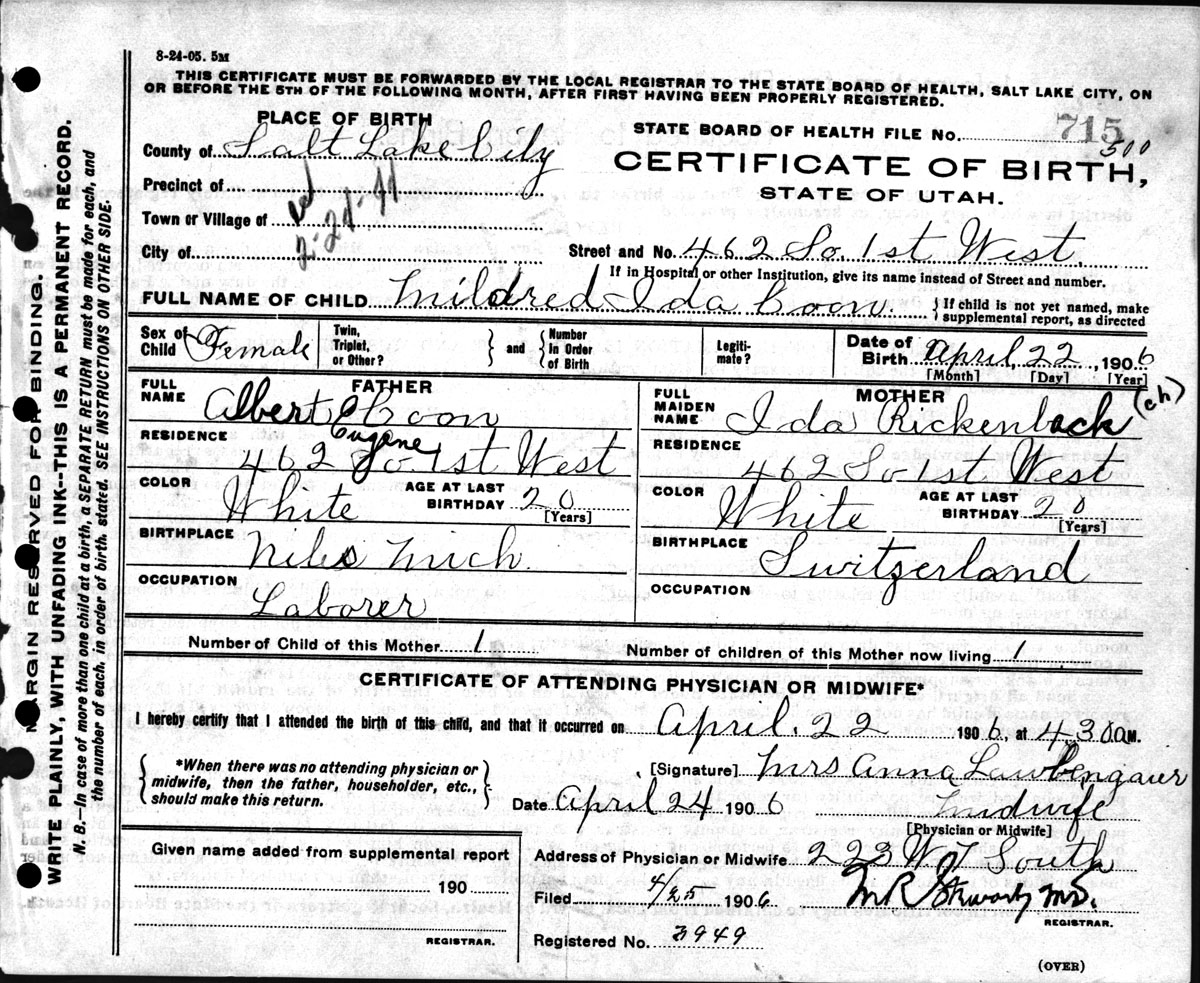 8-24-05. 5M
THIS CERTIFICATE MUST BE FORWARDED BY THE LOCAL REGISTRAR TO THE STATE BOARD OF HEALTH, SALT LAKE CITY, ON
OR BEFORE THE 5TH OF THE FOLLOWING MONTH, AFTER FIRST HAVING BEEN PROPERLY REGISTERED.
PLACE OF BIRTH
STATE BOARD OF HEALTH FILE No. 715
500
County of Salt Lake City
CERTIFICATE OF BIRTH,
STATE OF UTAH.
Precinct of
Town or Village of
2-24-41
City of
Street and No. 462 So. 1st West.
If in Hospital or other Institution, give its name instead of Street and number.
FULL NAME OF CHILD Mildred Ida Coon. {If child is not yet named, make
supplemental report, as directed
Sex of Child Female
Twin, Triplet, or Other? } and { Number in Order of Birth
Legitimate?
Date of Birth April, 22, 1906
[Month] [Day] [Year]
FATHER
FULL NAME Albert E Coon
Eugene
RESIDENCE
462 So 1st West
COLOR White AGE AT LAST BIRTHDAY 20
[Years]
BIRTHPLACE
Niles Mich.
OCCUPATION
Laborer
MOTHER
FULL MAIDEN NAME Ida Rickenback (ch)
RESIDENCE
462 So 1st West
COLOR White AGE AT LAST BIRTHDAY 20
[Years]
BIRTHPLACE
Switzerland
OCCUPATION
Number of Child of this Mother 1 Number of children of this Mother now living 1
CERTIFICATE OF ATTENDING PHYSICIAN OR MIDWIFE*
I hereby certify that I attended the birth of this child, and that it occurred on April. 22 1906, at 4.30 A M.
{*When there was no attending physician or
midwife, then the father, householder, etc.,
should make this return.}
[Signature] Mrs Anna
Date April 24 1906 Midwife
[Physician or Midwife]
Given name added from supplemental report
190
REGISTRAR.
Address of Physician or Midwife 223 W 7 South
Filed 4/25 1906 M R Stewart MD.
REGISTRAR.
Registered No. 3949
(OVER)
MARGIN RESERVED FOR BINDING.
WRITE PLAINLY, WITH UNFADING INK--THIS IS A PERMANENT RECORD.
N. B.--In case of more than one child at a birth, a SEPARATE RETURN must be made for each, and
the number of each, in order of birth, stated. SEE INSTRUCTIONS ON OTHER SIDE.